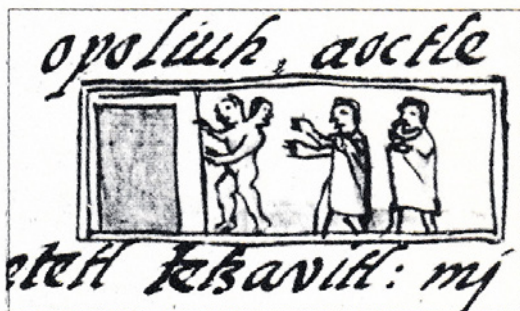 opoliuh, aoctle
etetl tetzavitl: mj